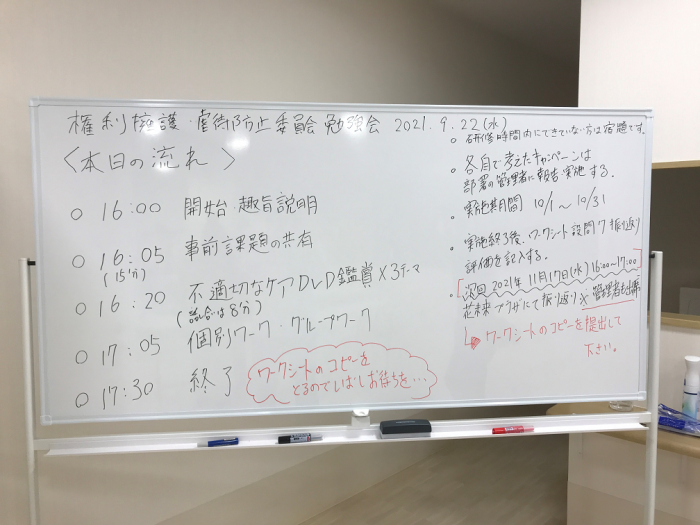 権利擁護・虐待防止委員会 勉強会 2021.9.22(水)
〈本日の流れ〉
○ 16:00 開始・趣旨説明
○ 16:05 事前課題の共有
(15分)
○ 16:20 不適切なケアDVD鑑賞×3テーマ
(話し合いは8分)
○ 17:05 個別ワーク・グループワーク
○ 17:30 終了
ワークシートのコピーを
とるのでしばしお待ちを…
○ 研修時間内にできていない方は宿題です。
○ 各自で考えたキャンペーンは
部署の管理者に報告・実施する。
○ 実施期間 10/1〜10/31
○ 実施終了後、ワークシート設問7 振り返り
評価を記入する。
次回 2021年 11月17日(水) 16:00〜17:00
プラザにて振り返り ※管理者も
ワークシートのコピーを提出して
下さい。